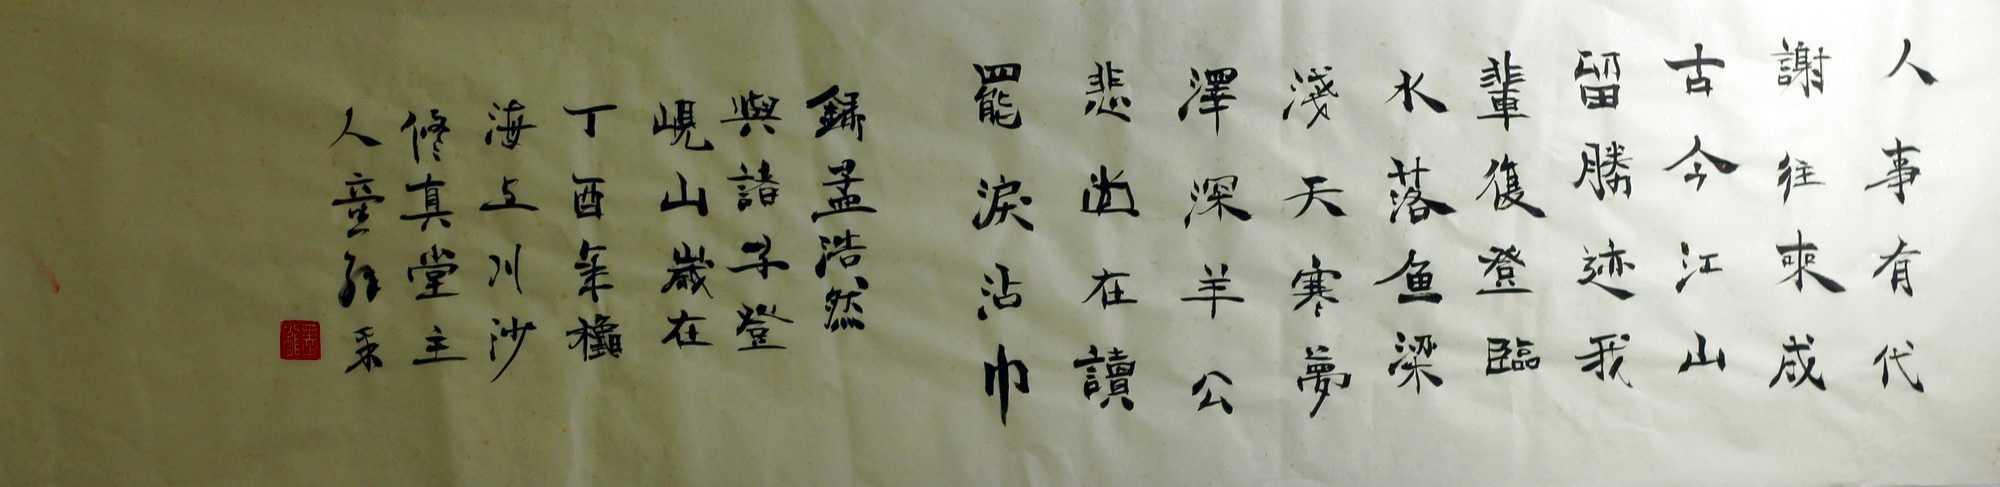 人事有代
謝往來成
古今江山
留勝迹我
輩復登臨
水落鱼梁
淺天寒夢
澤深羊公
悲尚在讀
罷淚沾巾
錄孟浩然
與諸子登
峴山歲在
丁酉年穐
海上川沙
修真堂主
人童